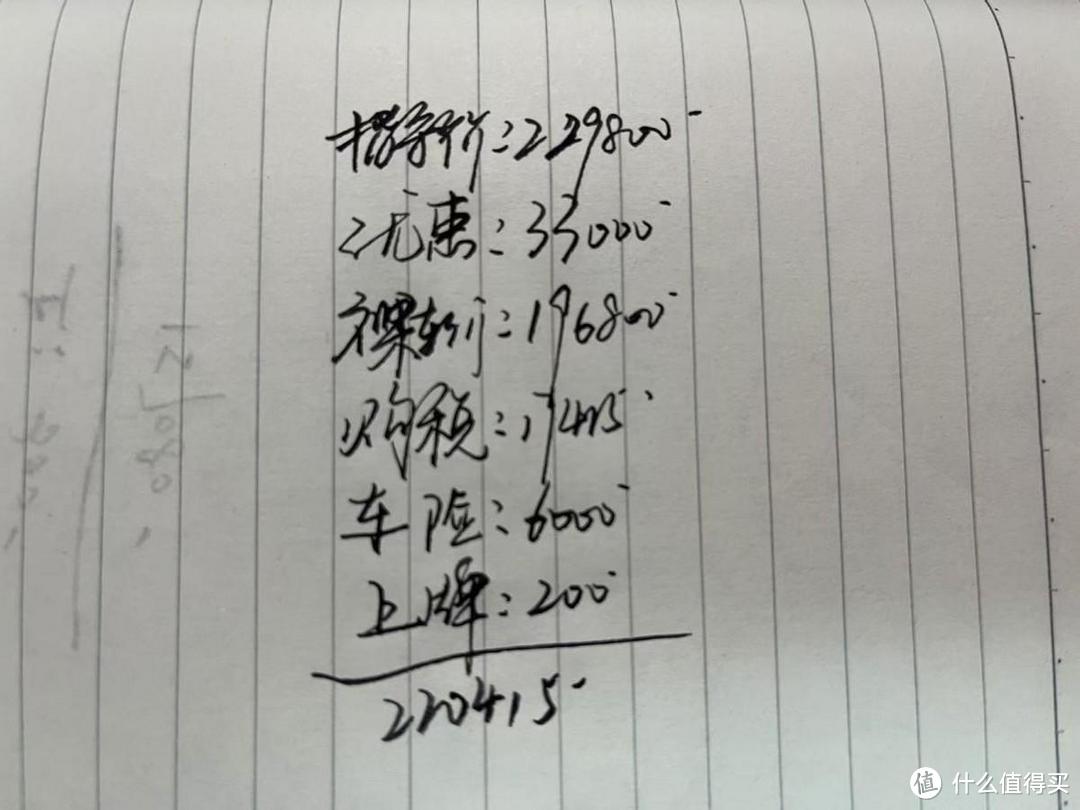 指导价:229800
优惠:33000
裸车价:196800
购税:17415
车险:6000
上牌:200
220415
值 什么值得买